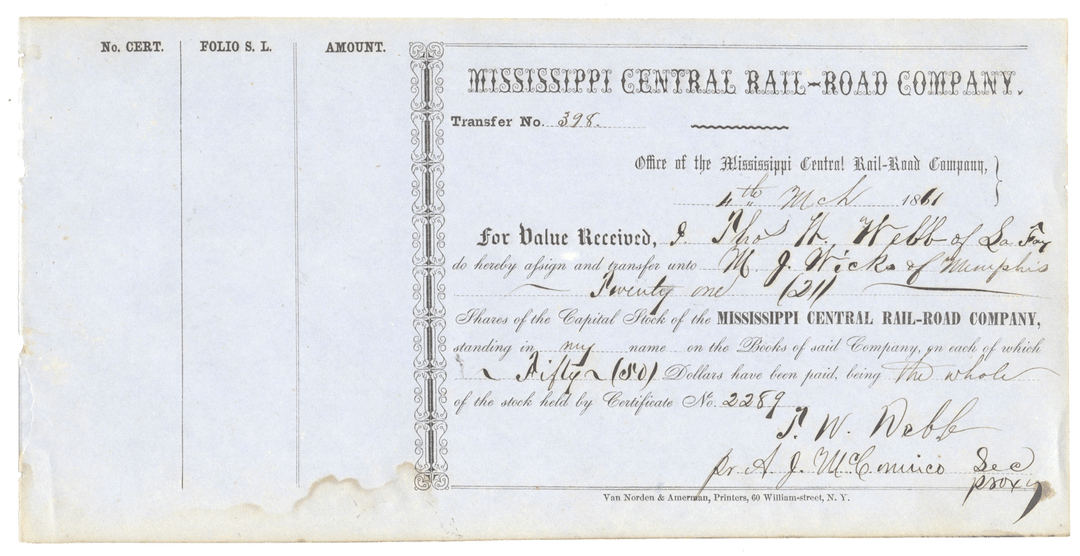 No. CERT. FOLIO S. L. AMOUNT.
MISSISSIPPI CENTRAL RAIL-ROAD COMPANY.
Transfer No. 398.
Office of the Mississippi Central Rail-Road Company,
4th Mch 1861
For Value Received, I Thos W. Webb of La Fay
do hereby assign and transfer unto M. J. Wicks of Memphis
Twenty one (21)
Shares of the Capital Stock of the MISSISSIPPI CENTRAL RAIL-ROAD COMPANY,
standing in my name on the Books of said Company, on each of which
Fifty (50) Dollars have been paid, being the whole
of the stock held by Certificate No. 2289
T. W. Webb
pr. A. J. McConnico Sec
proxy
Van Norden & Amerman, Printers, 60 William-street, N. Y.